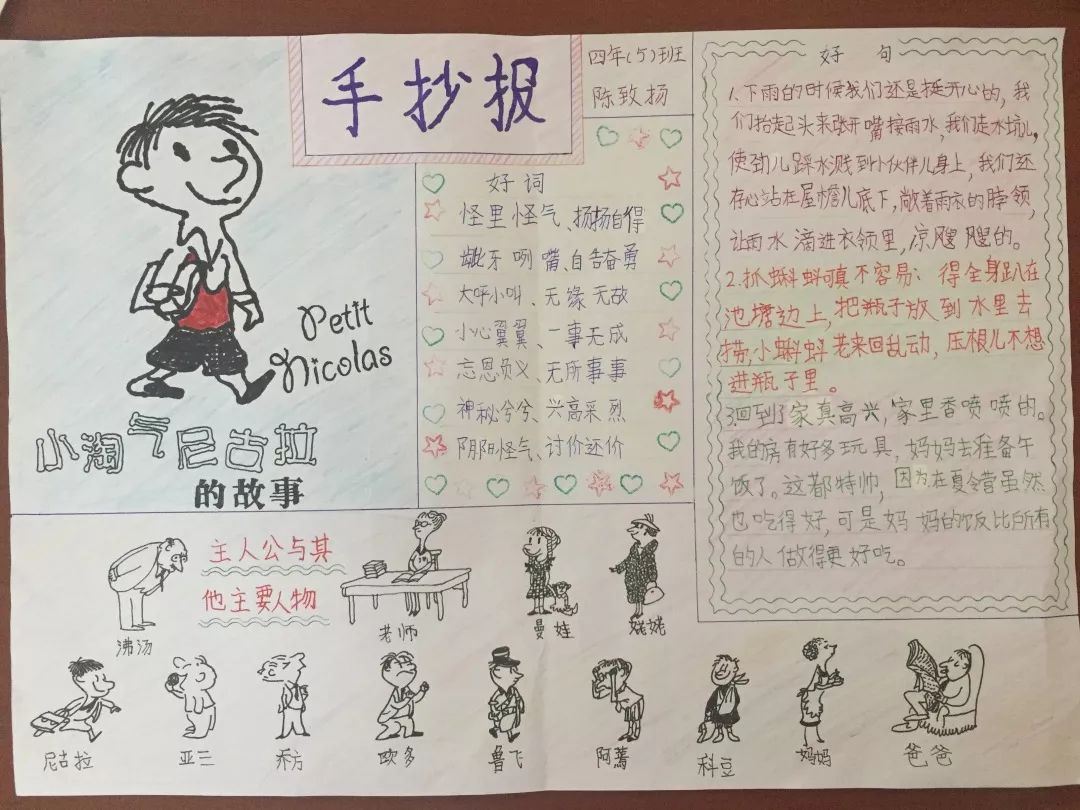 手抄报
四年(5)班
陈致扬
Petit
Nicolas
小淘气尼古拉
的故事
好词
怪里怪气、扬扬自得
龇牙咧嘴、自告奋勇
大呼小叫、无缘无故
小心翼翼、一事无成
忘恩负义、无所事事
神秘兮兮、兴高采烈
阴阳怪气、讨价还价
好句
1.下雨的时候我们还是挺开心的,我
们抬起头来张开嘴接雨水,我们走水坑儿,
使劲儿踩水溅到小伙伴儿身上,我们还
存心站在屋檐儿底下,敞着雨衣的脖领,
让雨水滴进衣领里,凉飕飕的。
2.抓蝌蚪可真不容易:得全身趴在
池塘边上,把瓶子放到水里去
捞,小蝌蚪老来回乱动,压根儿不想
进瓶子里。
3.回到了家真高兴,家里香喷喷的。
我的房有好多玩具,妈妈去准备午
饭了。这都特帅,因为在夏令营虽然
也吃得好,可是妈妈的饭比所有
的人做得更好吃。
主人公与其
他主要人物
沸汤
老师
曼娃
姥姥
尼古拉
亚三
乔方
欧多
鲁飞
阿蔫
科豆
妈妈
爸爸